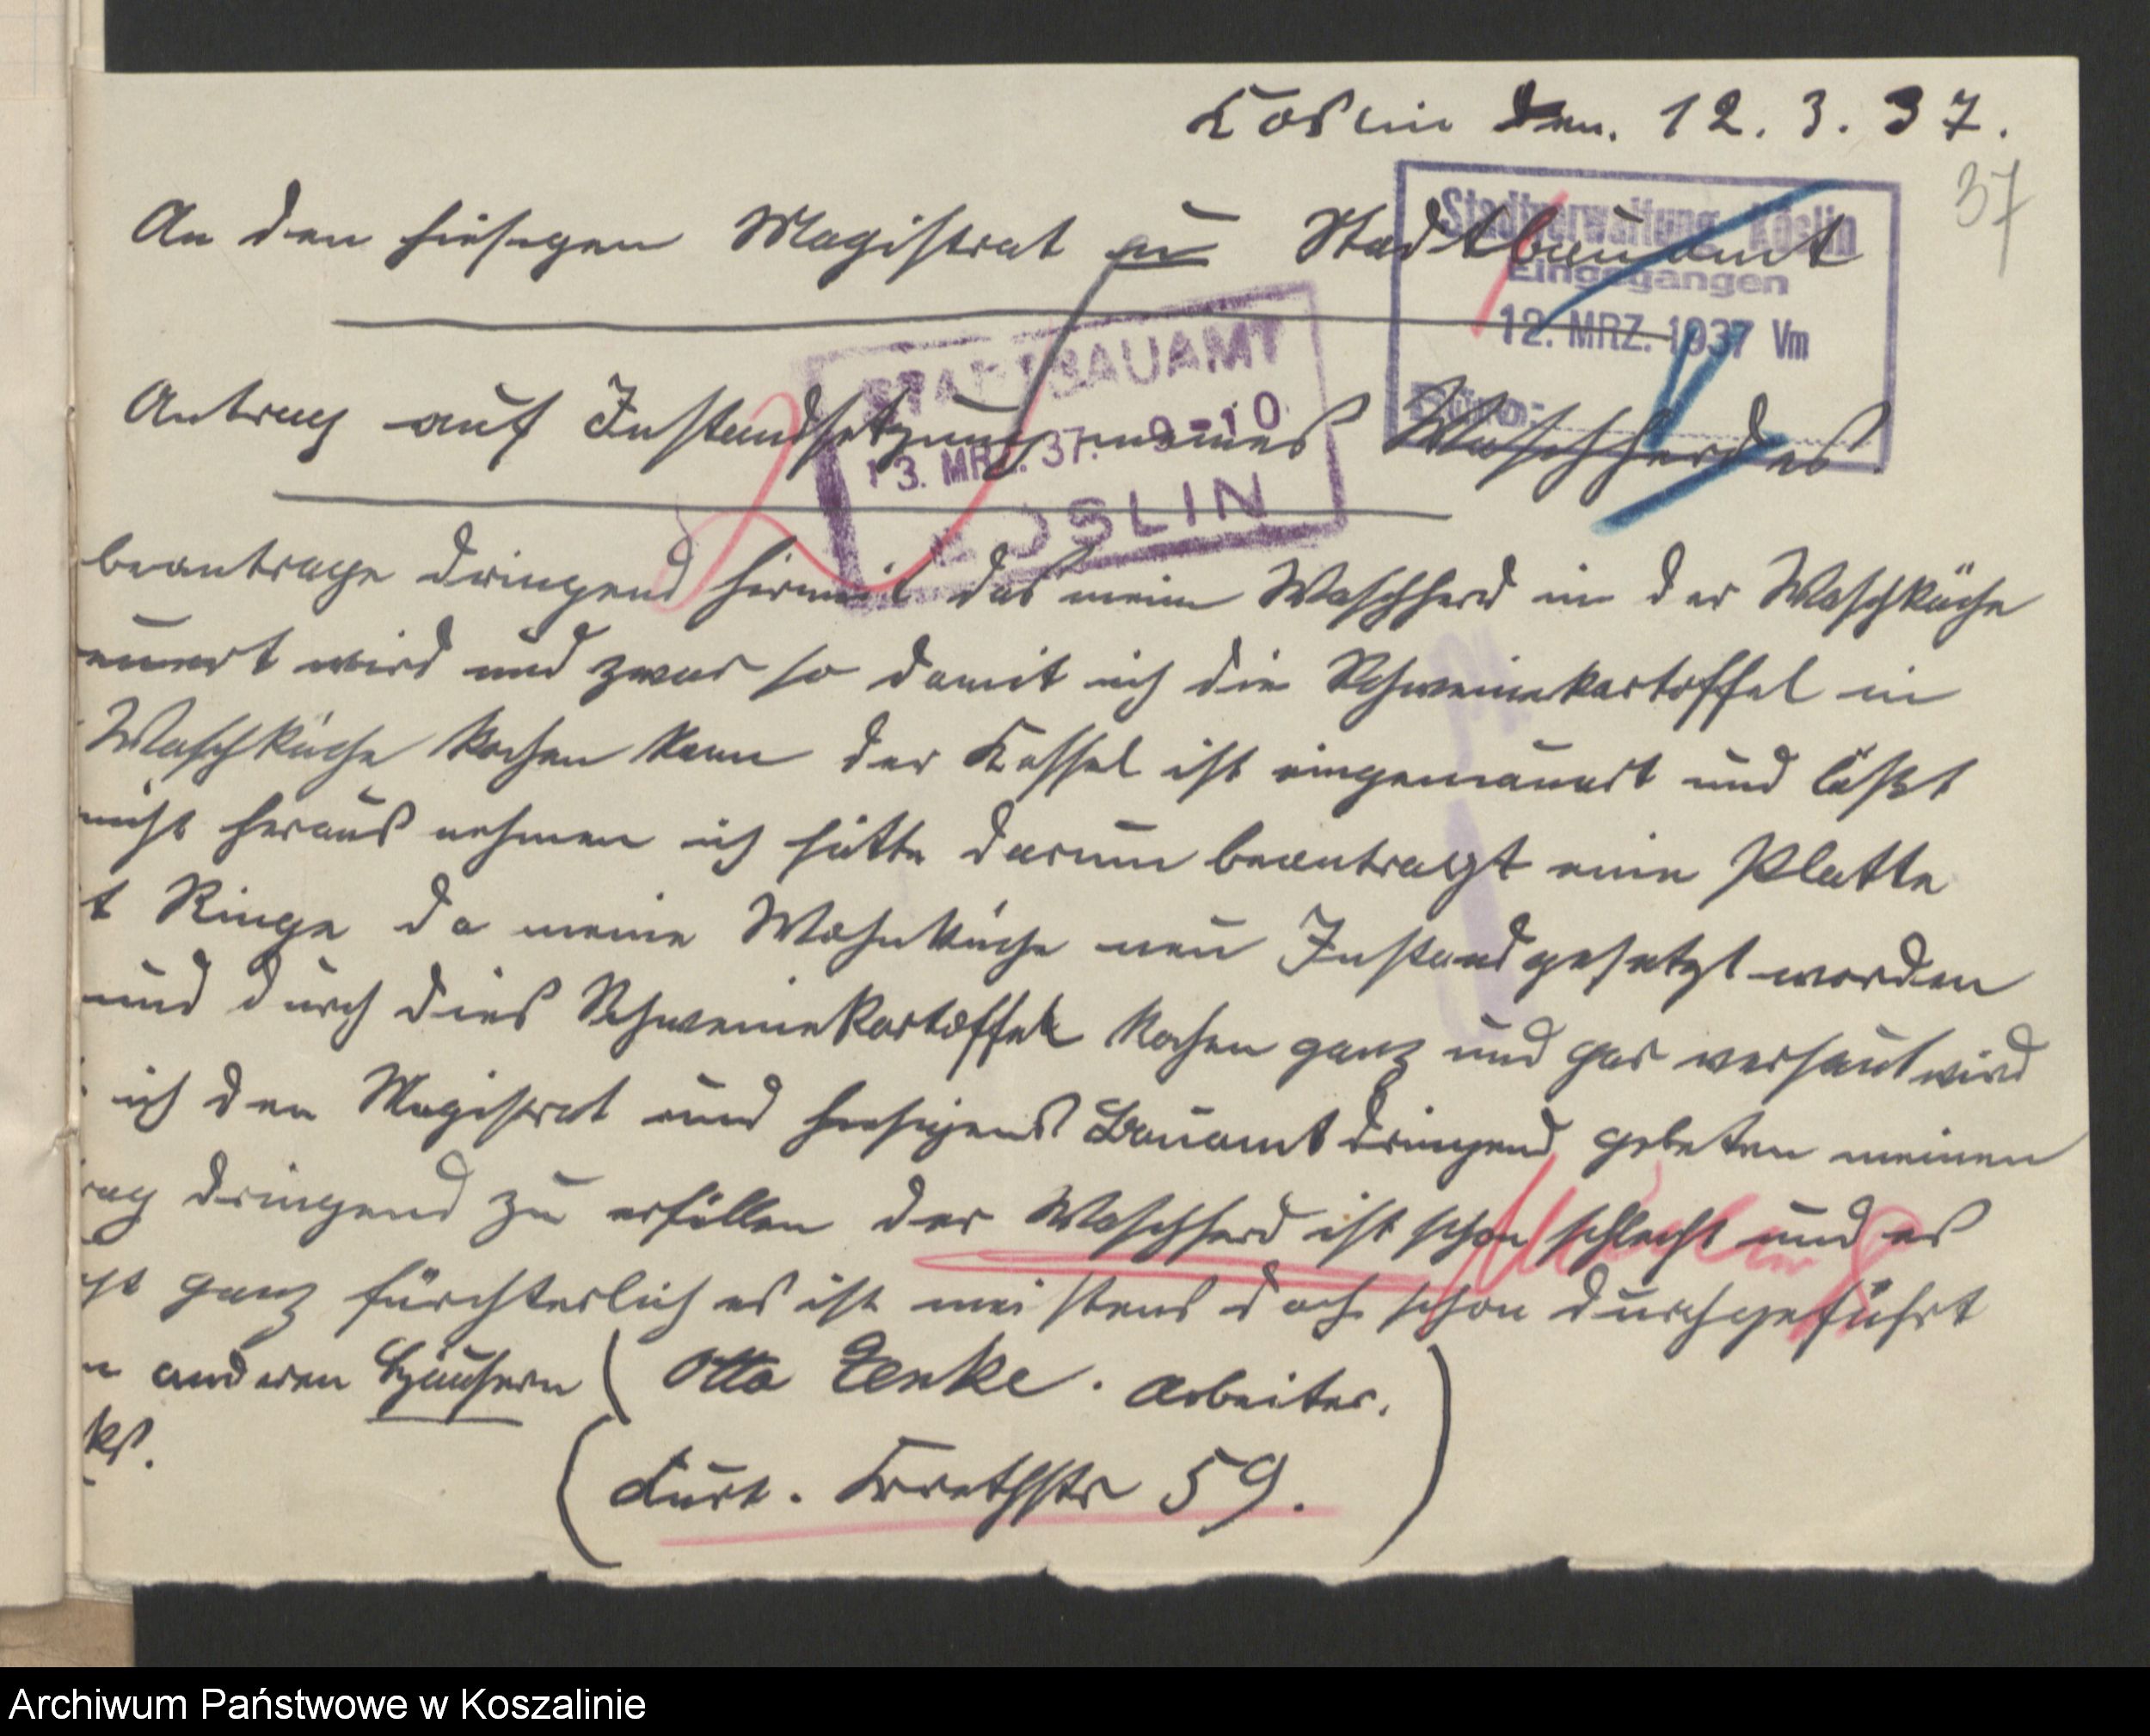 Köslin den. 12. 3. 37.
37
An den hiesigen Magistrat u Stadtbauamt
Stadtverwaltung Köslin
Eingegangen
12. MRZ. 1937 Vm
Büro:
STADTBAUAMT
13. MRZ. 37. 9-10
KÖSLIN
Antrag auf Instandsetzung meines Waschherdes.
beantrage dringend hirmit das mein Waschherd in der Waschküche
euert wird und zwar so damit ich die Schweinekartoffel in
Waschküche kochen kann der Kessel ist eingemauert und läßt
nicht heraus nehmen ich hätte darum beantragt eine Platte
t Ringe da meine Wohnküche neu Instandgesetzt worden
und durch dies Schweinekartoffel kochen ganz und gar versaut wird
ich den Magistrat und hiesigens Bauamt dringend gebeten meinen
rag dringend zu erfüllen der Waschherd ist schon schlecht und es
ganz fürchterlich es ist meistens doch schon durchgeführt
n anderen Häusern ( Otto Arbeiter. )
( 59. )
Archiwum Państwowe w Koszalinie